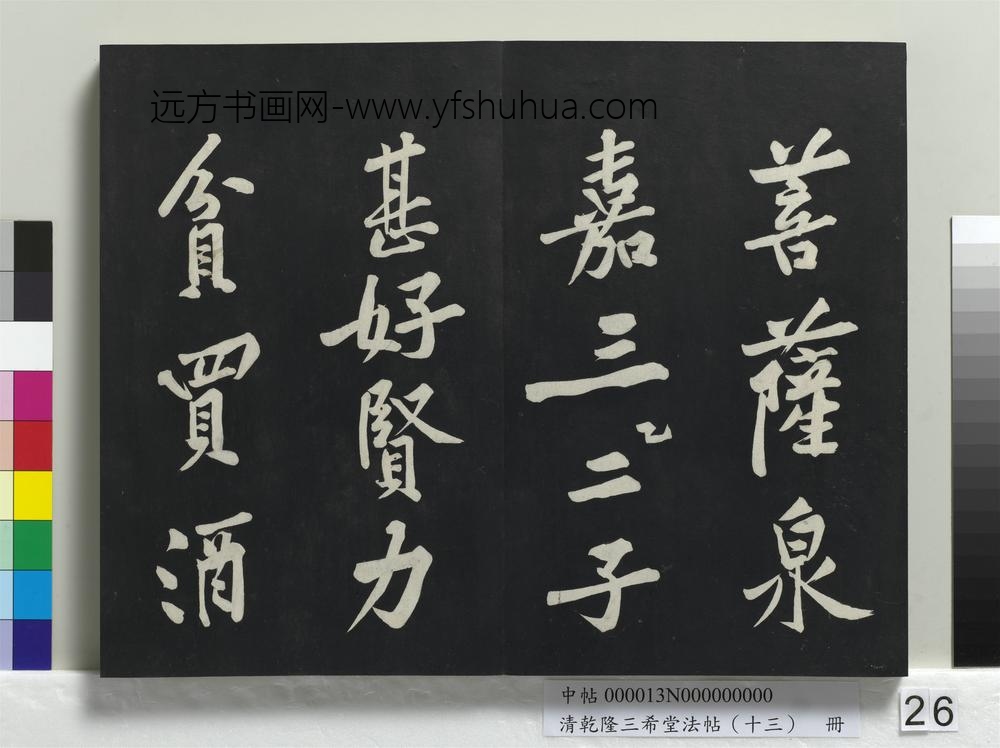 远方书画网-www.yfshuhua.com
菩薩泉
嘉三二子
甚好賢力
貧買酒
中帖 000013N000000000
清乾隆三希堂法帖（十三） 冊
26